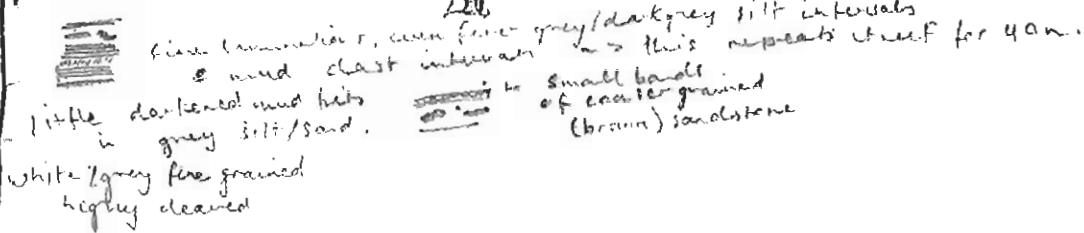 fine laminations, even finer grey/dark grey silt intervals
& mud clast intervals => this repeats itself for 40m.
- little darkened mud bits
in grey silt/sand.
small bands
of coarser grained
(brown) sandstone
white/grey fine grained
highly cleaved